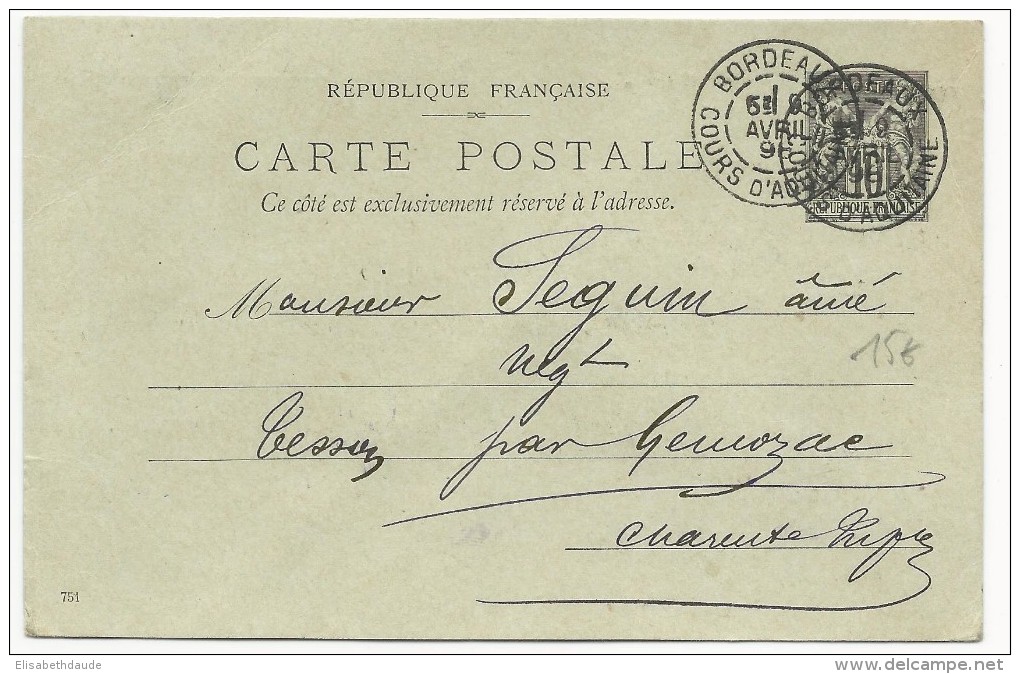 RÉPUBLIQUE FRANÇAISE
CARTE POSTALE
Ce côté est exclusivement réservé à l'adresse.
BORDEAUX
AVRIL
COURS D'AQUITAINE
BORDEAUX
D'AQUITAINE
10
RÉPUBLIQUE FRANÇAISE
Monsieur Seguin âiné
Negt
15€
Tesson par Gemozac
Charente Infre
751
Elisabethdaude
www.delcampe.net